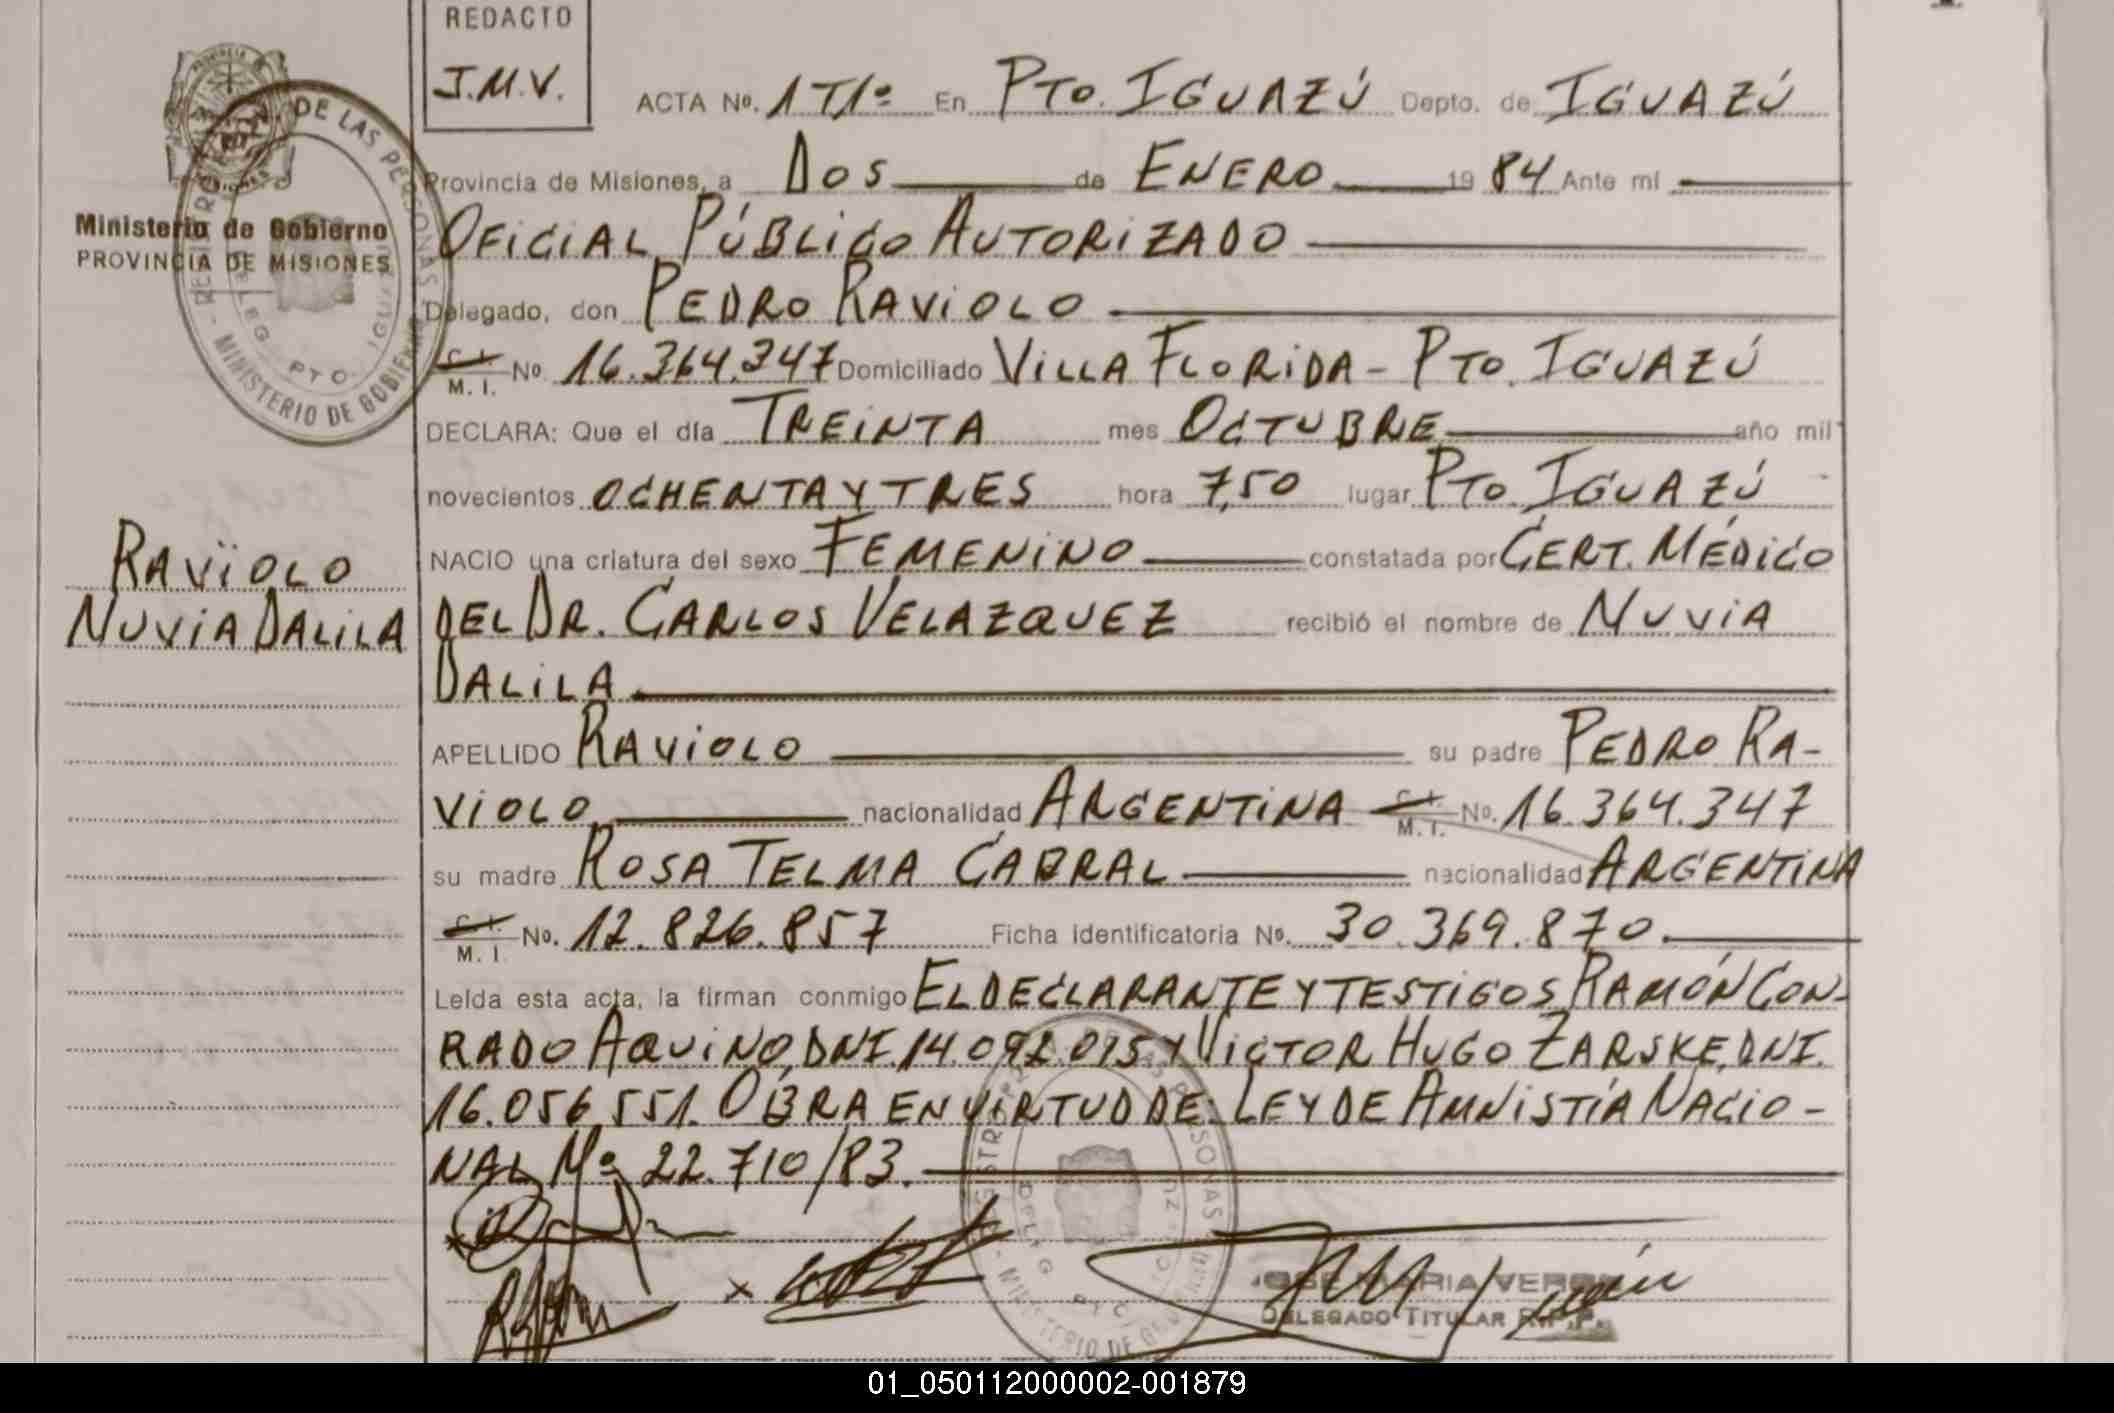 REDACTO
J.M.V.
ACTA No. 1 T1º En PTO. IGUAZÚ Depto. de IGUAZÚ
Provincia de Misiones, a DOS de ENERO 19 84 Ante mi
Ministerio de Gobierno
PROVINCIA DE MISIONES
OFICIAL PÚBLICO AUTORIZADO
Delegado, don PEDRO RAVIOLO
C.I. M.I. No. 16.364.347 Domiciliado VILLA FLORIDA - PTO. IGUAZÚ
DECLARA: Que el día TREINTA mes OCTUBRE año mil
novecientos OCHENTA Y TRES hora 7,50 lugar PTO. IGUAZÚ
NACIO una criatura del sexo FEMENINO constatada por CERT. MÉDICO
RAVIOLO
NUVIA DALILA
DEL DR. CARLOS VELAZQUEZ recibió el nombre de NUVIA
DALILA
APELLIDO RAVIOLO su padre PEDRO RA-
VIOLO nacionalidad ARGENTINA C.I. M.I. No. 16.364.347
su madre ROSA TELMA CABRAL nacionalidad ARGENTINA
C.I. M.I. No. 12.826.857 Ficha identificatoria No. 30.369.870.
Leída esta acta, la firman conmigo EL DECLARANTE Y TESTIGOS RAMÓN CON-
RADO AQUINO, DNI. 14.092.015 Y VICTOR HUGO ZARSKE, DNI.
16.056.551. OBRA EN VIRTUD DE: LEY DE AMNISTÍA NACIO-
NAL Nº 22.710/83.
JOSE MARIA
DELEGADO TITULAR R.P.P.
REGISTRO PROV. DE LAS PERSONAS - MINISTERIO DE GOBIERNO
DELEG. PTO. IGUAZU
01_050112000002-001879